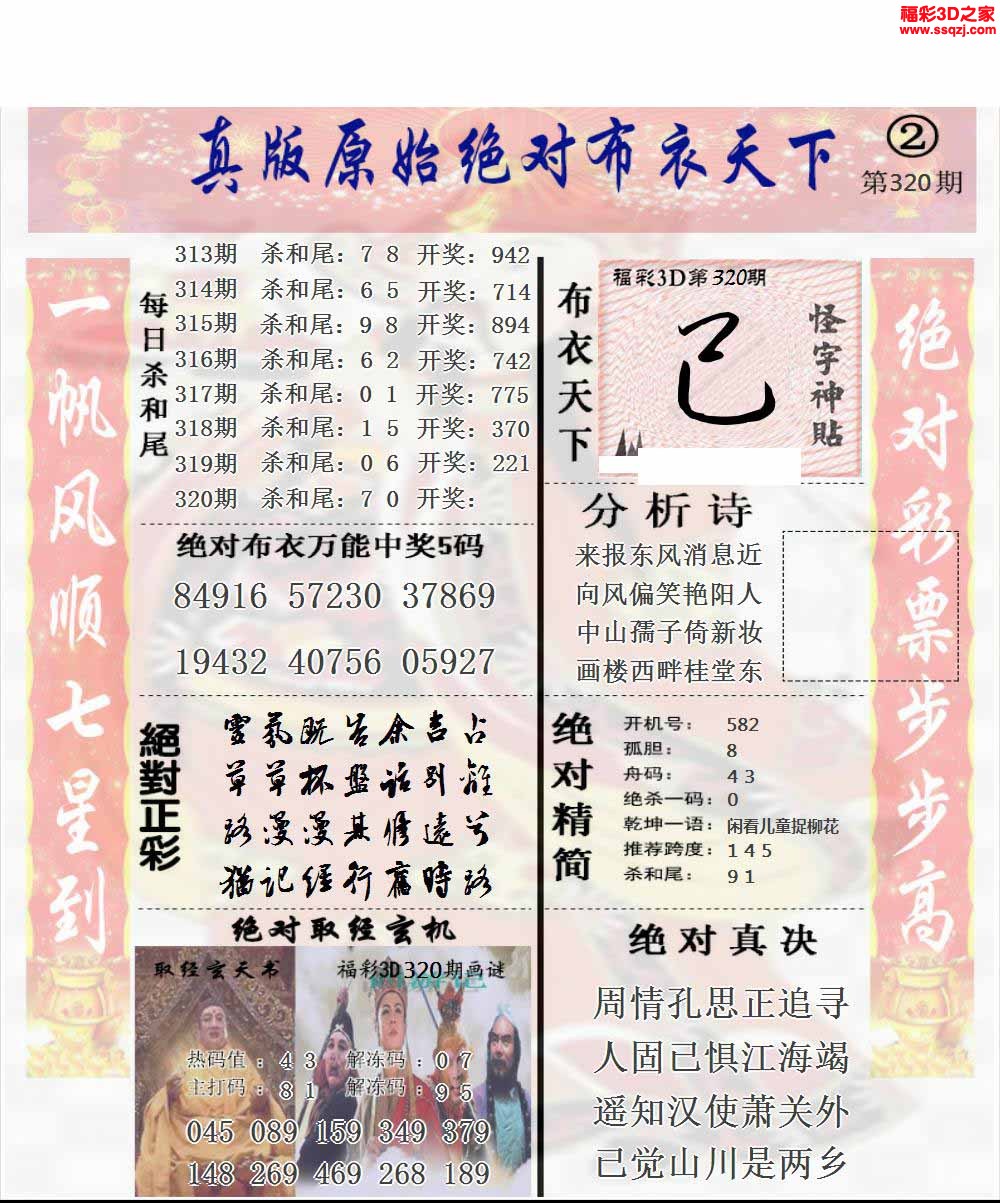 福彩3D之家
www.ssqzj.com
真版原始绝对布衣天下
②
第320期
一帆风顺七星到
每日杀和尾
313期 杀和尾：7 8 开奖：942
314期 杀和尾：6 5 开奖：714
315期 杀和尾：9 8 开奖：894
316期 杀和尾：6 2 开奖：742
317期 杀和尾：0 1 开奖：775
318期 杀和尾：1 5 开奖：370
319期 杀和尾：0 6 开奖：221
320期 杀和尾：7 0 开奖：
绝对布衣万能中奖5码
84916 57230 37869
19432 40756 05927
絕對正彩
靈氣既告余吉占
草草杯盤話別離
路漫漫其修遠兮
猶記經行舊時路
绝对取经玄机
取经玄天书
福彩3D320期画谜
热码值：4 3 解冻码：0 7
主打码：8 1 解冻码：9 5
045 089 159 349 379
148 269 469 268 189
布衣天下
福彩3D第320期
己
怪字神貼
分析诗
来报东风消息近
向风偏笑艳阳人
中山孺子倚新妆
画楼西畔桂堂东
绝对精简
开机号：582
孤胆：8
舟码：4 3
绝杀一码：0
乾坤一语：闲看儿童捉柳花
推荐跨度：1 4 5
杀和尾：9 1
绝对真决
周情孔思正追寻
人固已惧江海竭
遥知汉使萧关外
已觉山川是两乡
绝对彩票步步高